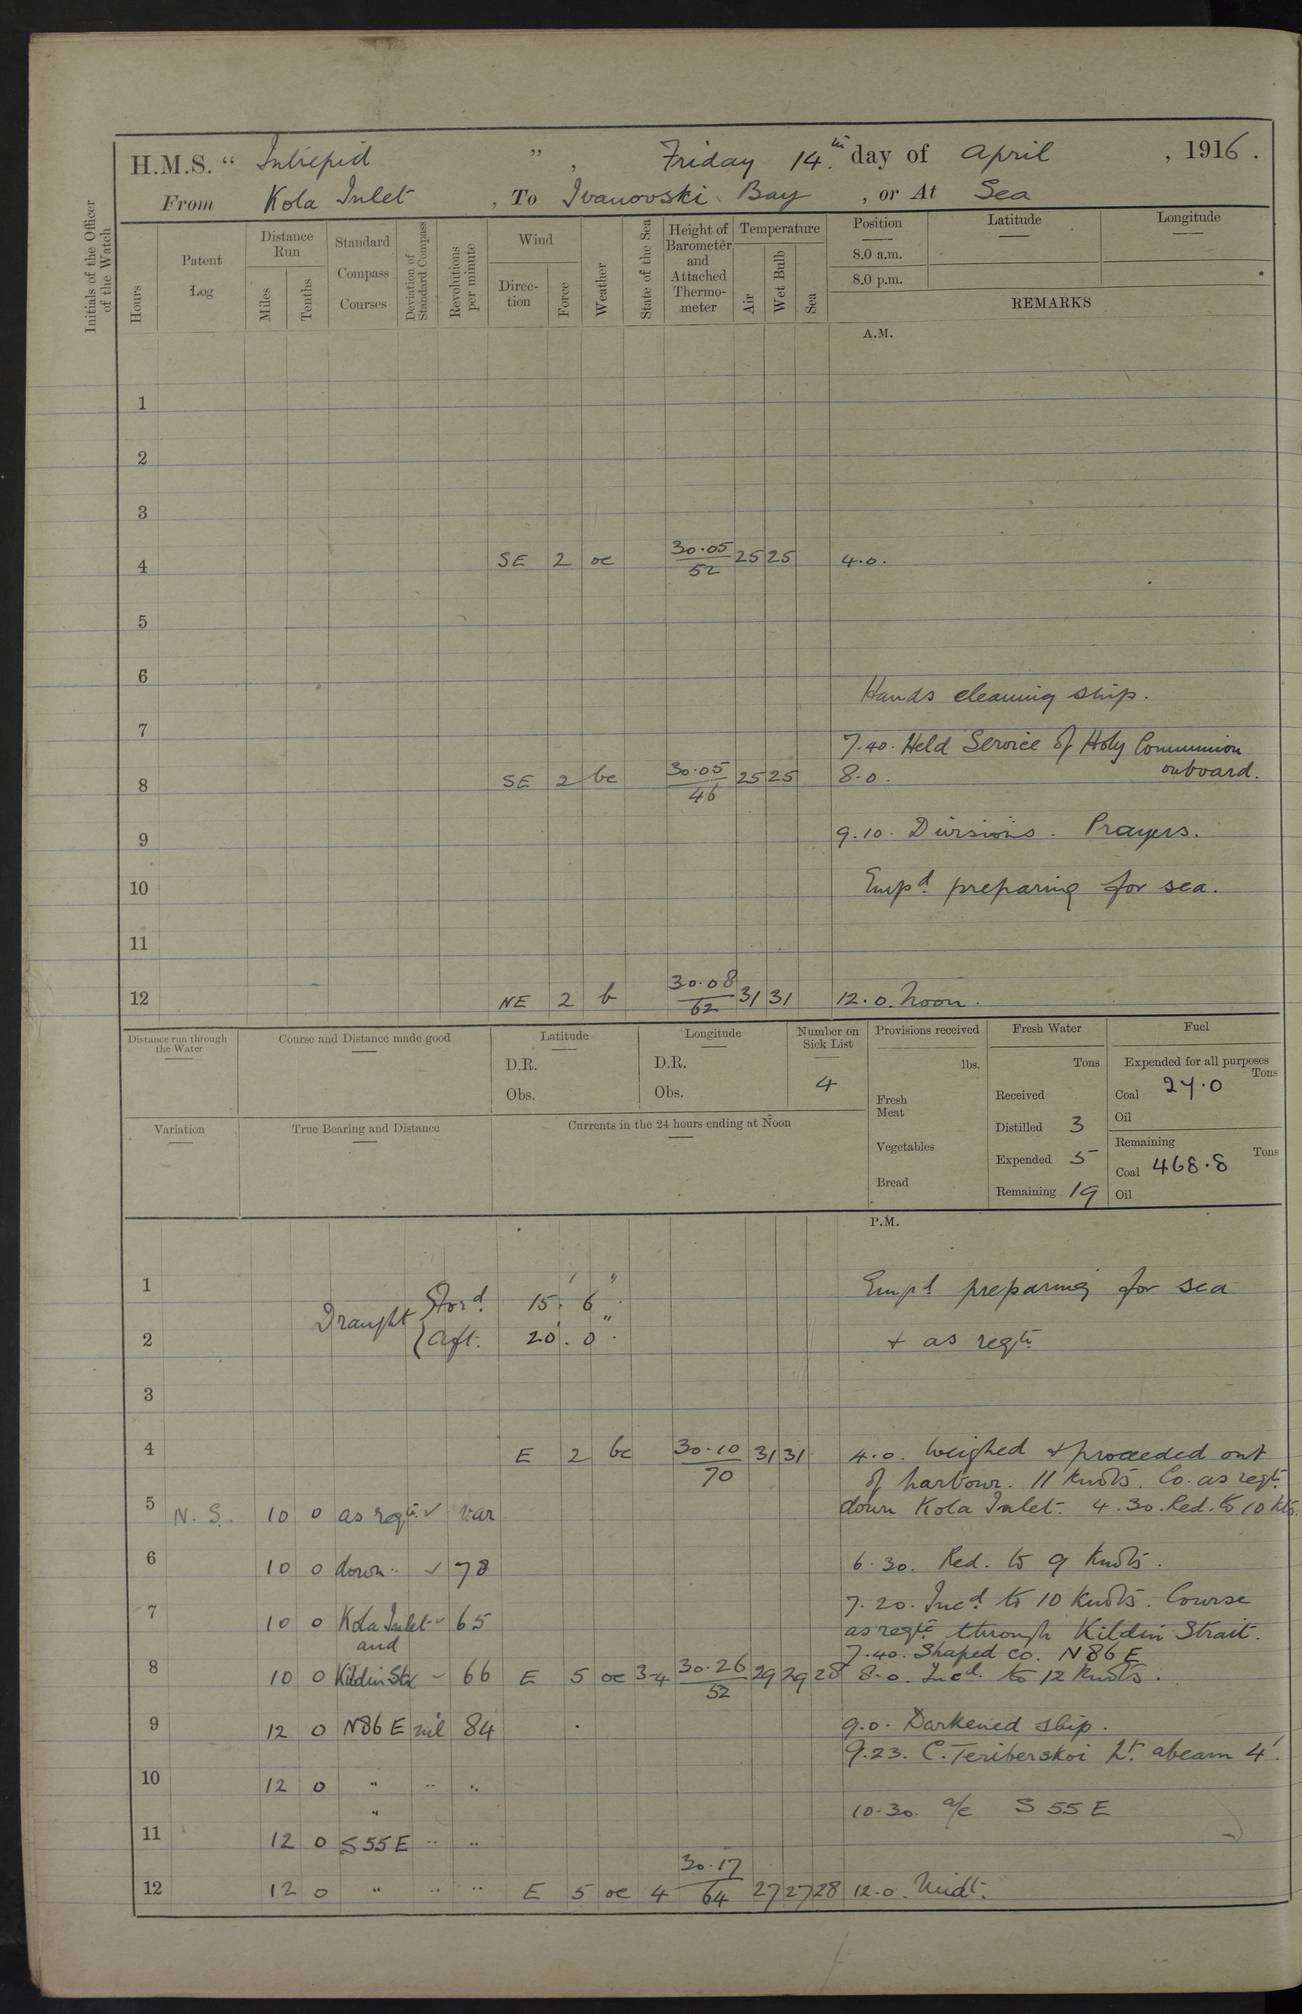 H.M.S. " Intrepid " , Friday 14th day of April , 1916 .
From Kola Inlet , To Ivanovski Bay , or At Sea
Initials of the Officer of the Watch
Hours
Patent Log
Distance Run
Miles
Tenths
Standard Compass Courses
Deviation of Standard Compass
Revolutions per minute
Wind
Direction
Force
Weather
State of the Sea
Height of Barometer and Attached Thermometer
Temperature
Air
Wet Bulb
Sea
Position
8.0 a.m.
8.0 p.m.
Latitude
Longitude
REMARKS
A.M.
1
2
3
4 SE 2 oc 30.05 / 52 25 25 4.0.
5
6
Hands cleaning ship.
7
7.40. Held Service of Holy Communion
onboard.
8 SE 2 bc 30.05 / 46 25 25 8.0.
9 9.10. Divisions. Prayers.
10 Empd. preparing for sea.
11
12 NE 2 b 30.08 / 62 31 31 12.0. Noon.
Distance run through the Water
Course and Distance made good
Latitude
D.R.
Obs.
Longitude
D.R.
Obs.
Number on Sick List
4
Provisions received
lbs.
Fresh Meat
Vegetables
Bread
Fresh Water
Tons
Received
Distilled 3
Expended 5
Remaining 19
Fuel
Expended for all purposes
Tons
Coal 27.0
Oil
Remaining
Tons
Coal 468.8
Oil
Variation
True Bearing and Distance
Currents in the 24 hours ending at Noon
P.M.
1 Draught { Ford. 15' 6" Empd preparing for sea
2 { Aft. 20' 0" + as reqte
3
4 E 2 bc 30.10 / 70 31 31 4.0. Weighed + proceeded out
of harbour. 11 knots. Co. as reqte
5 N.S. 10 0 as reqte ✓ var down Kola Inlet. 4.30. Red. to 10 kts.
6 10 0 down ✓ 78 6.30. Red. to 9 knots.
7.20. Incd. to 10 knots. Course
7 10 0 Kola Inlet ✓ 65 as reqte through Kildin Strait.
and
7.40. Shaped co. N86E
8 10 0 Kildin Str ✓ 66 E 5 oc 3-4 30.26 / 52 29 29 28 8.0. Incd. to 12 knots.
9 12 0 N86E nil 84 9.0. Darkened ship.
9.23. C. Teriberskoi Lt. abeam 4'.
10 12 0 " " "
" 10.30. a/c S 55 E
11 12 0 S 55 E " "
12 12 0 " " " E 5 oc 4 30.17 / 64 27 27 28 12.0. Midt.